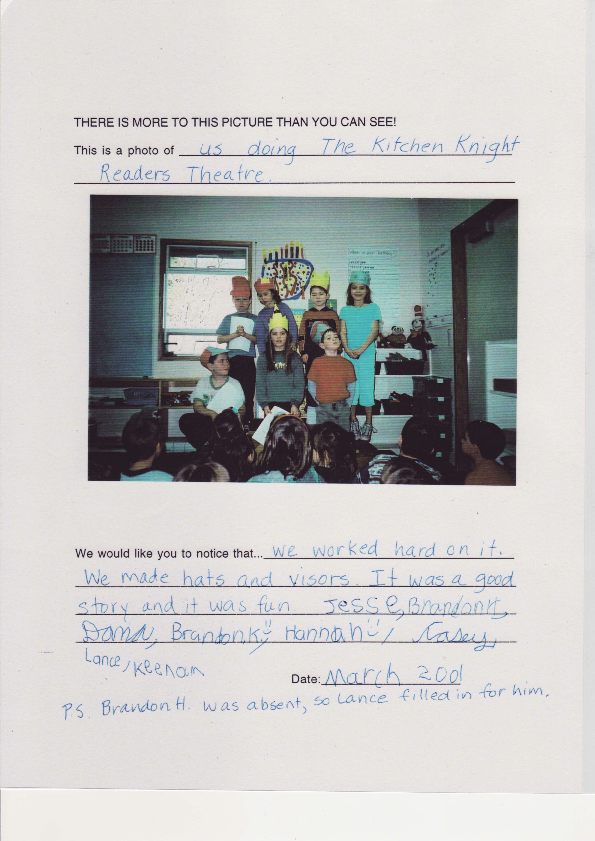 THERE IS MORE TO THIS PICTURE THAN YOU CAN SEE!
This is a photo of us doing The Kitchen Knight
Readers Theatre.
We would like you to notice that... we worked hard on it.
We made hats and visors. It was a good
story and it was fun. Jesse, Brandon H,
Dana, Brandon K, Hannah, Casey,
Lance, Keenan
Date: March 2001
P.S. Brandon H. was absent, so Lance filled in for him.